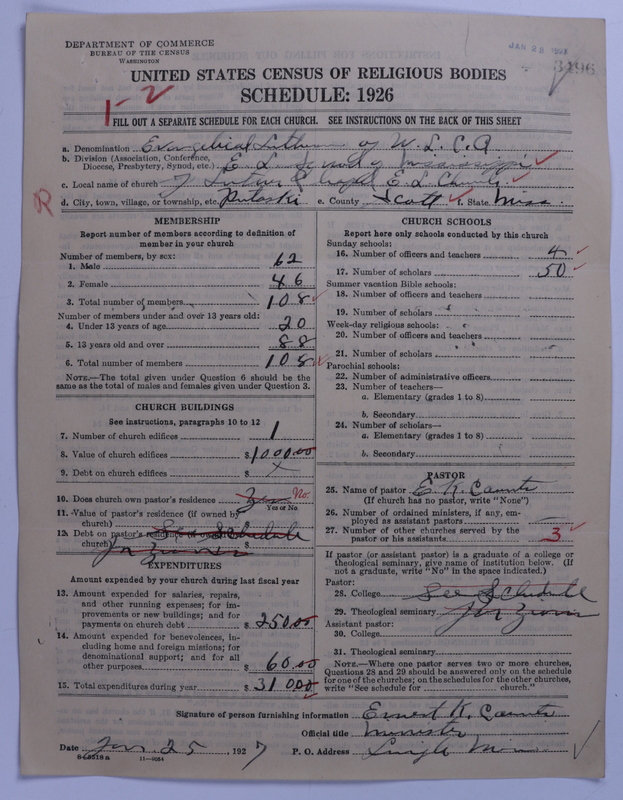 DEPARTMENT OF COMMERCE
BUREAU OF THE CENSUS
WASHINGTON
JAN 28
3496
UNITED STATES CENSUS OF RELIGIOUS BODIES
SCHEDULE: 1926
1-2
FILL OUT A SEPARATE SCHEDULE FOR EACH CHURCH. SEE INSTRUCTIONS ON THE BACK OF THIS SHEET
a. Denomination Evangelical Lutheran of
b. Division (Association, Conference, Diocese, Presbytery, Synod, etc.) E. L. Synod of Mississippi
c. Local name of church Luther Chapel E. L. Church
R
d. City, town, village, or township, etc. Pulaski e. County Scott f. State Miss.
MEMBERSHIP
Report number of members according to definition of
member in your church
Number of members, by sex:
1. Male 62
2. Female 46
3. Total number of members 108
Number of members under and over 13 years old:
4. Under 13 years of age 20
5. 13 years old and over 88
6. Total number of members 108
NOTE.—The total given under Question 6 should be the
same as the total of males and females given under Question 3.
CHURCH BUILDINGS
See instructions, paragraphs 10 to 12
7. Number of church edifices 1
8. Value of church edifices $1000.00
9. Debt on church edifices $ x
10. Does church own pastor's residence No.
Yes or No
11. Value of pastor's residence (if owned by
church) $
12. Debt on pastor's residence
church) $
See Schedule
for
EXPENDITURES
Amount expended by your church during last fiscal year
13. Amount expended for salaries, repairs,
and other running expenses; for im-
provements or new buildings; and for
payments on church debt $250.00
14. Amount expended for benevolences, in-
cluding home and foreign missions; for
denominational support; and for all
other purposes $60.00
15. Total expenditures during year $310.00
CHURCH SCHOOLS
Report here only schools conducted by this church
Sunday schools:
16. Number of officers and teachers 4
17. Number of scholars 50
Summer vacation Bible schools:
18. Number of officers and teachers
19. Number of scholars
Week-day religious schools:
20. Number of officers and teachers
21. Number of scholars
Parochial schools:
22. Number of administrative officers
23. Number of teachers—
a. Elementary (grades 1 to 8)
b. Secondary
24. Number of scholars—
a. Elementary (grades 1 to 8)
b. Secondary
PASTOR
25. Name of pastor E. K. Counts
(If church has no pastor, write "None")
26. Number of ordained ministers, if any, em-
ployed as assistant pastors
27. Number of other churches served by the
pastor or his assistants 3
If pastor (or assistant pastor) is a graduate of a college or
theological seminary, give name of institution below. (If
not a graduate, write "No" in the space indicated.)
Pastor:
28. College See Schedule
29. Theological seminary for
Assistant pastor:
30. College
31. Theological seminary
NOTE.—Where one pastor serves two or more churches,
Questions 28 and 29 should be answered only on the schedule
for one of the churches; on the schedules for the other churches,
write "See schedule for church."
Signature of person furnishing information Ernest K. Counts
Official title Minister
Date Jan. 25, 1927 P. O. Address Miss
8-5518a 11-9054